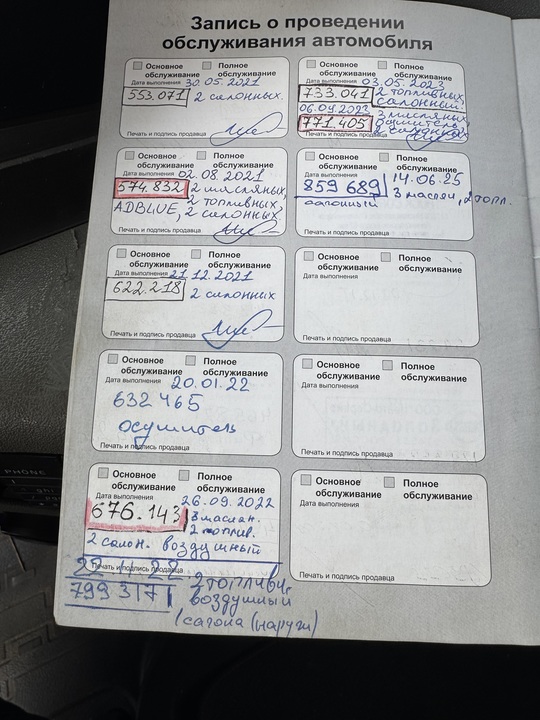 Запись о проведении
обслуживания автомобиля
Основное обслуживание
Полное обслуживание
Дата выполнения 30.05.2021
553.071 2 салонных.
Печать и подпись продавца
Основное обслуживание
Полное обслуживание
Дата выполнения 02.08.2021
574.832 2 масляных,
2 топливных
ADBLUE, 2 салонных,
Печать и подпись продавца
Основное обслуживание
Полное обслуживание
Дата выполнения 21.12.2021
622.218 2 салонных
Печать и подпись продавца
Основное обслуживание
Полное обслуживание
Дата выполнения 20.01.22
632 465
осушитель
Печать и подпись продавца
Основное обслуживание
Полное обслуживание
Дата выполнения 26.09.2022
676.143 3 маслян.
2 топлив.
2 салон. воздушный
Печать и подпись продавца
799 317 2 топливн,
воздушный
/салона (наруги)
Основное обслуживание
Полное обслуживание
Дата выполнения 03.05.2023
733.041 2 топливных
салонный
06.09.2023 3 масляных
771.405 осушитель
2 салонных
Печать и подпись продавца
Основное обслуживание
Полное обслуживание
Дата выполнения 14.06.25
859 689 3 маслян, 2 топл.
салонный
Печать и подпись продавца
Основное обслуживание
Полное обслуживание
Дата выполнения
Печать и подпись продавца
Основное обслуживание
Полное обслуживание
Дата выполнения
Печать и подпись продавца
Основное обслуживание
Полное обслуживание
Дата выполнения
Печать и подпись продавца
PHONE